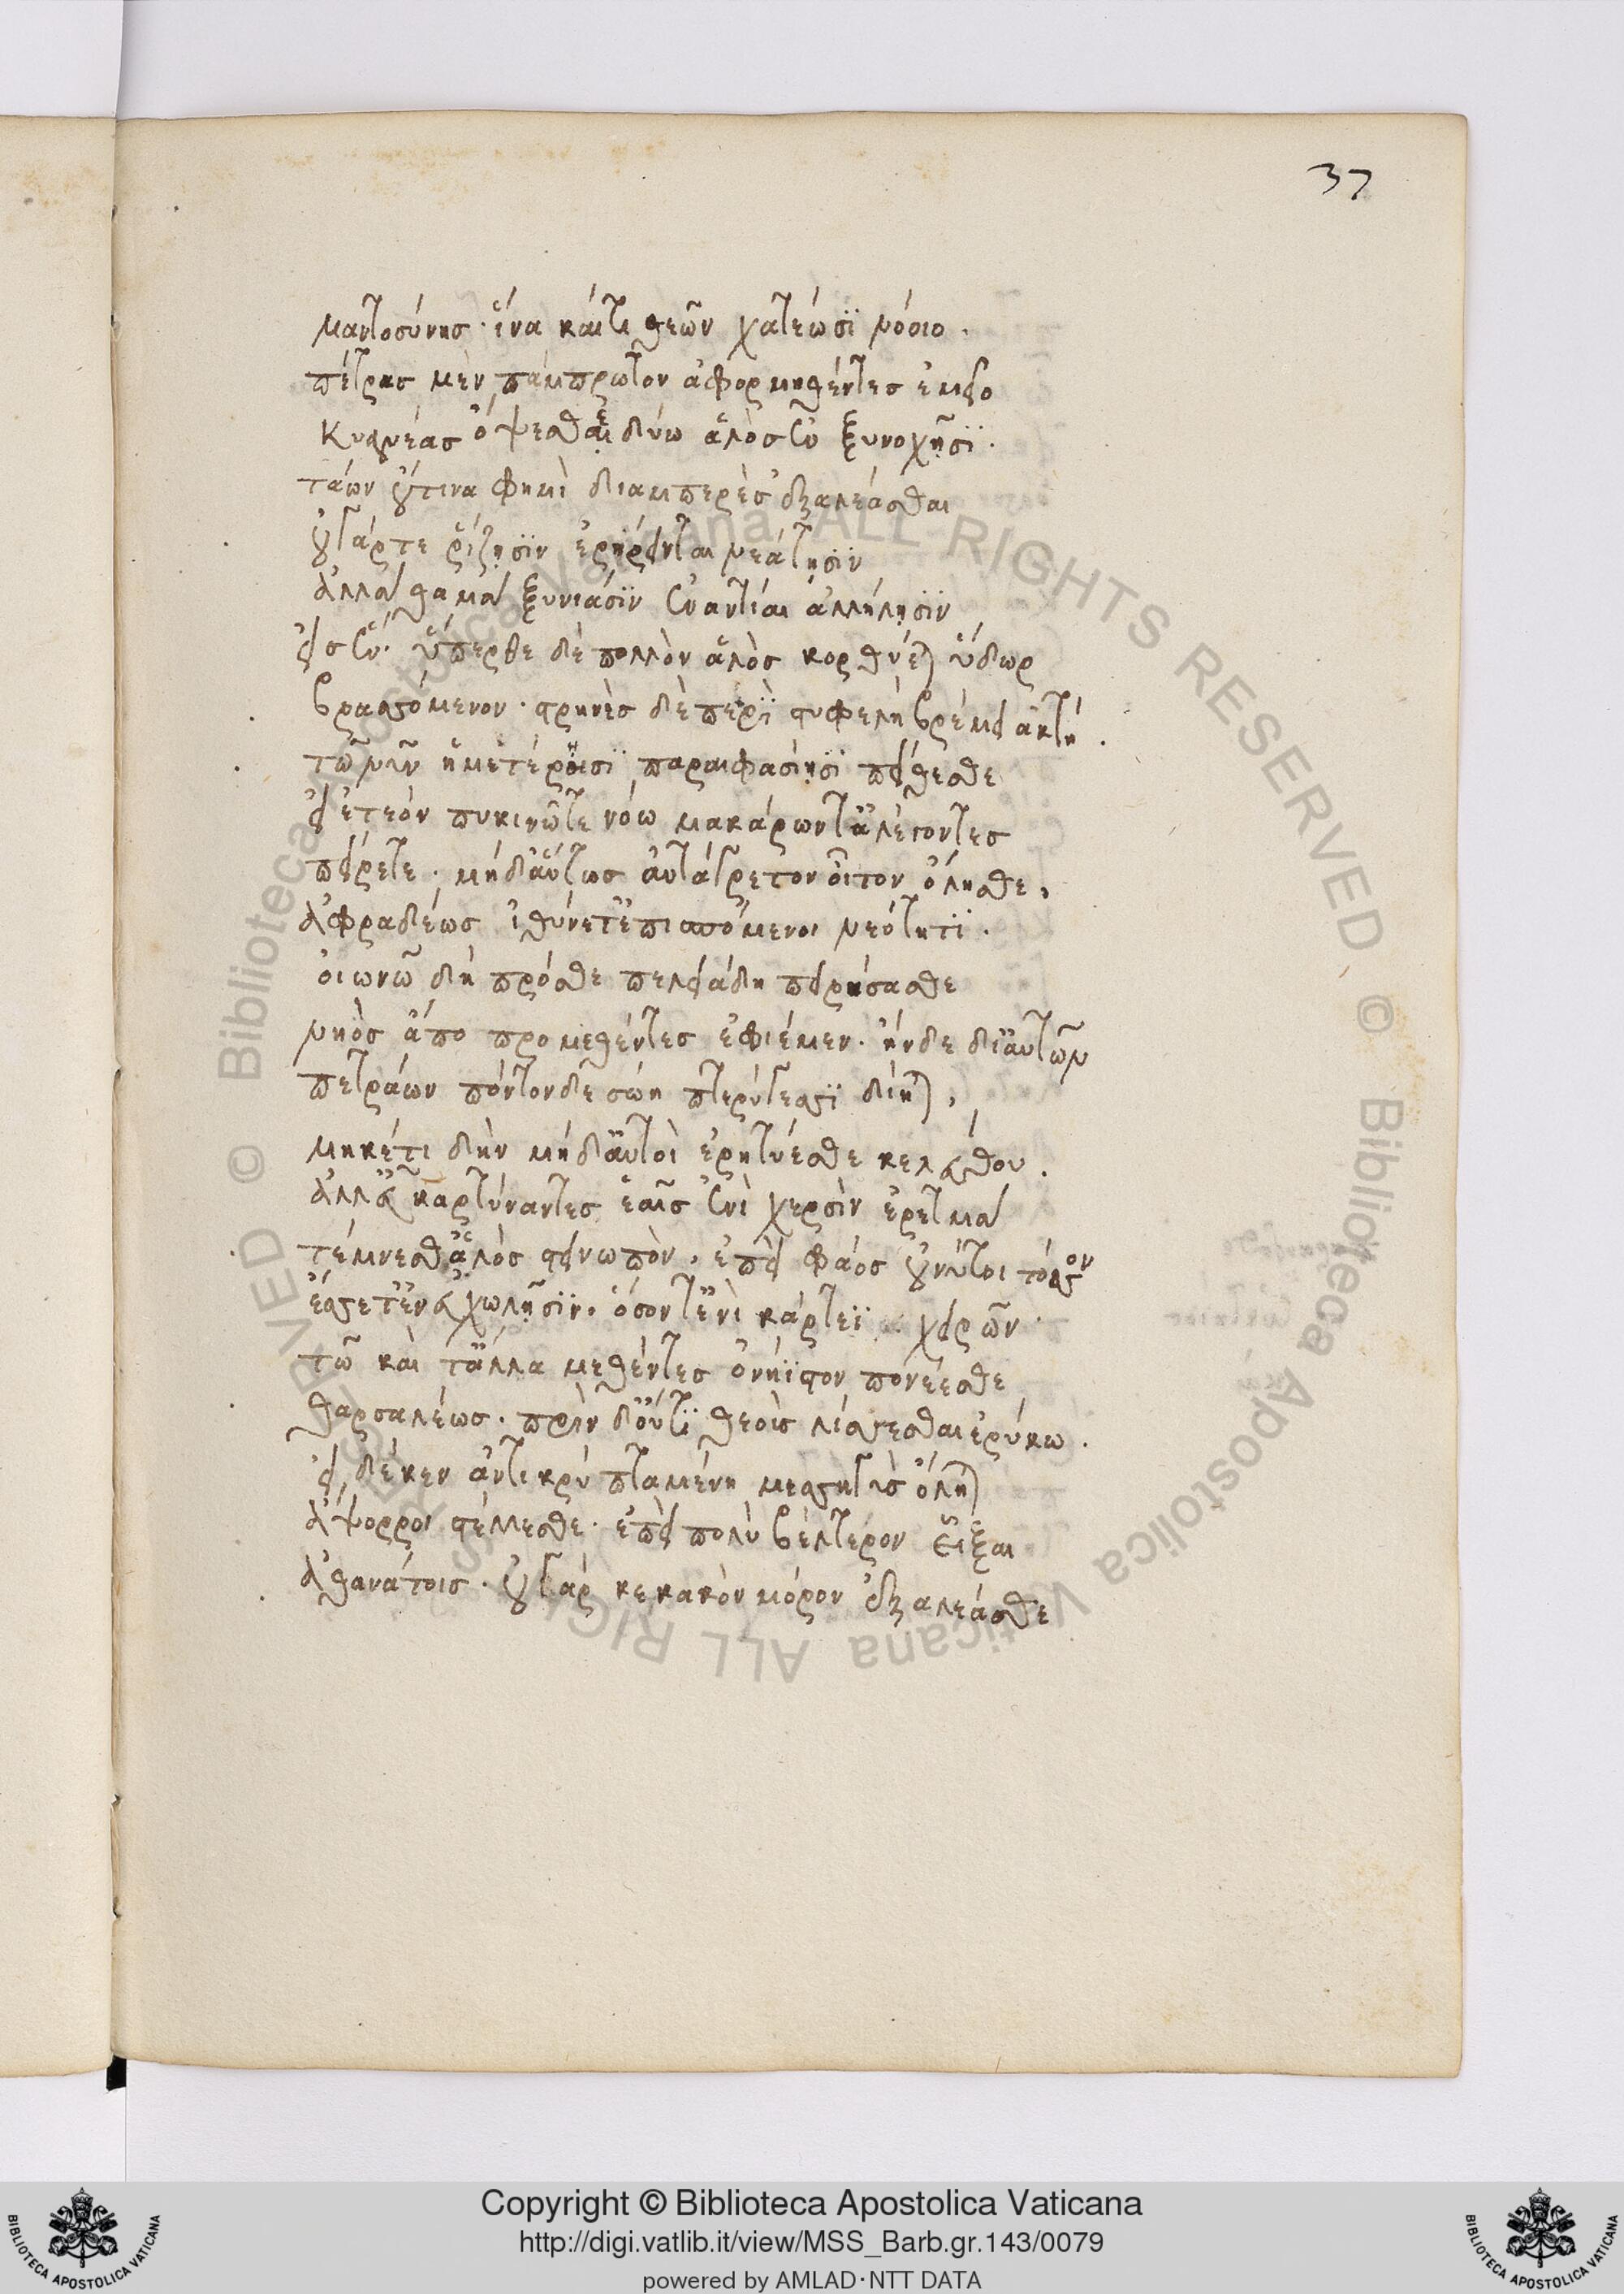 37
μαντοσύνης· ἵνα καί τι θεῶν χατέωσϊ νόοιο.
πέτρας μὲν πάμπρωτον ἀφορμηθέντες ἐμεῖο
Κυανέας ὄψεσθαι δύω ἁλὸς ἐν ξυνοχῇσϊ.
τάων οὔτινα φημὶ διαμπερὲς ἐξαλέασθαι
οὐ γάρ τε ῥίζῃσϊν ἐρήρεινται νεάτῃσϊν
ἀλλὰ θαμὰ ξυνιάσϊν ἐναντίαι ἀλλήλῃσϊν
εἰς ἕν· ὕπερθε δὲ πολλὸν ἁλὸς κορθύεται ὕδωρ
βρασσόμενον· στρηνὲς δὲ περὶ στυφελὴ βρέμει ἀκτή.
τῶ νῦν ἡμετέροισϊ παραιφασίῃσϊ πείθεσθε
εἰ ἐτεὸν πυκινῶ τε νόω μακάρων τ' ἀλέγοντες
πείρετε· μηδ' αὔτως αὐτάγρετον οἶτον ὄλησθε,
ἀφραδέως ἰθύνετ' ἐπισπόμενοι νεότητϊ.
οἰωνῶ δὴ πρόσθε πελειάδι πειρήσασθε
νηὸς ἄπο προμεθέντες ἐφιέμεν· ἢν δὲ δι' αὐτῶν
πετράων πόντονδε σώη πτερύγεσσϊ δίηται,
μηκέτι δὴν μηδ' αὐτοὶ ἐρητύεσθε κελεύθου.
ἀλλ' εὖ καρτύναντες ἑαῖς ἐνὶ χερσὶν ἐρετμὰ
τέμνεσθ' ἁλὸς στεινωπὸν· ἐπεὶ φάος οὔ νύ τοι τόσσον
ἔσσετ' ἐν εὐχωλῇσϊν· ὅσον τ' ἐνὶ κάρτεϊ χειρῶν
τῶ καὶ τἄλλα μεθέντες ὀνήϊστον πονέεσθε
θαρσαλέως· πρὶν δ' οὔτϊ θεοὶς λίσσεσθαι ἐρύκω.
εἰ δέ κεν ἀντικρύ πταμένη μεσσηγὺς ὄληται
ἄψορροι στέλλεσθε· ἐπεὶ πολὺ βέλτερον εἶξαι
ἀθανάτοις· οὐ γάρ κε κακὸν μόρον ἐξαλέασθε
Copyright © Biblioteca Apostolica Vaticana
http://digi.vatlib.it/view/MSS_Barb.gr.143/0079
powered by AMLAD·NTT DATA
© Biblioteca Apostolica Vaticana ALL RIGHTS RESERVED
© Biblioteca Apostolica Vaticana ALL RIGHTS RESERVED
BIBLIOTECA APOSTOLICA VATICANA
BIBLIOTECA APOSTOLICA VATICANA